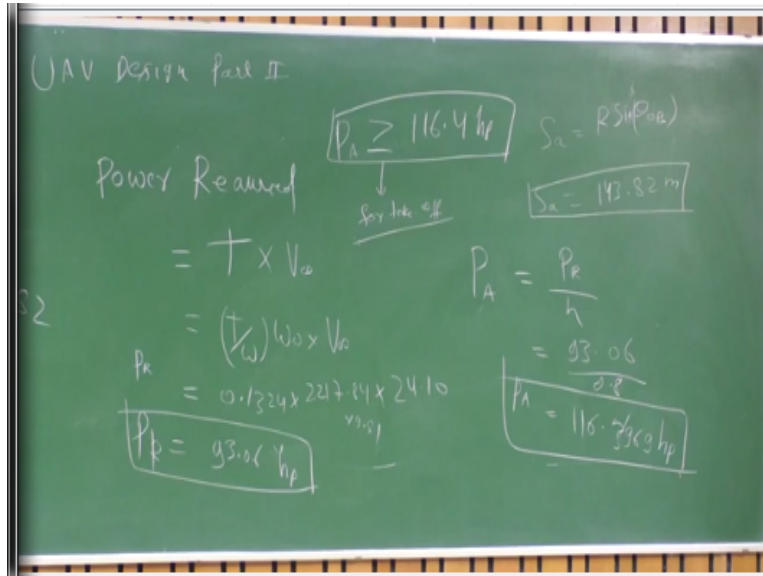 UAV Design Part II
P_A ≥ 116.4 hp
for take off
S_a = R Sin(θ_OB)
S_a = 143.82 m
Power Required
= T × V∞
= (T/W) W_0 × V∞
P_R
= 0.1324 × 2217.84 × 24.10
×9.81
P_R = 93.06 hp
P_A = P_R / η
= 93.06 / 0.8
P_A = 116.3969 hp